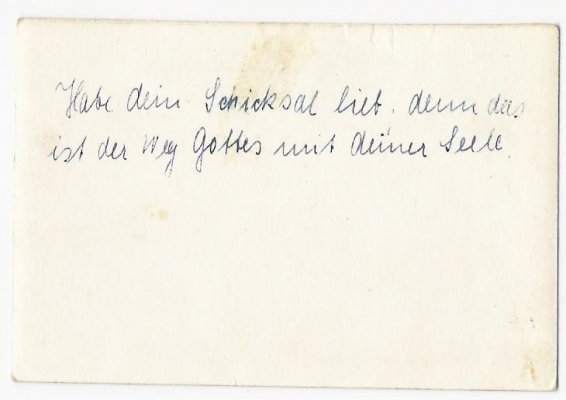 Habe dein Schicksal lieb. denn das
ist der Weg Gottes mit deiner Seele.